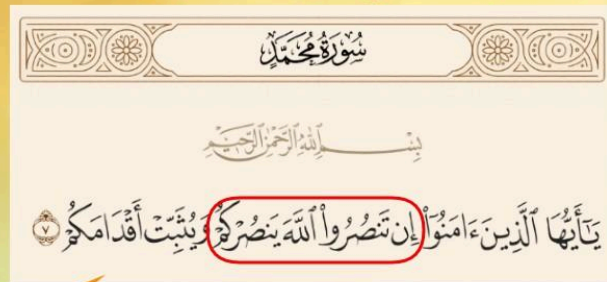 سُورَةُ مُحَمَّدٍ
بِسْمِ ٱللَّهِ ٱلرَّحْمَٰنِ ٱلرَّحِيمِ
يَٰٓأَيُّهَا ٱلَّذِينَ ءَامَنُوٓا۟ إِن تَنصُرُوا۟ ٱللَّهَ يَنصُرْكُمْ وَيُثَبِّتْ أَقْدَامَكُمْ ٧